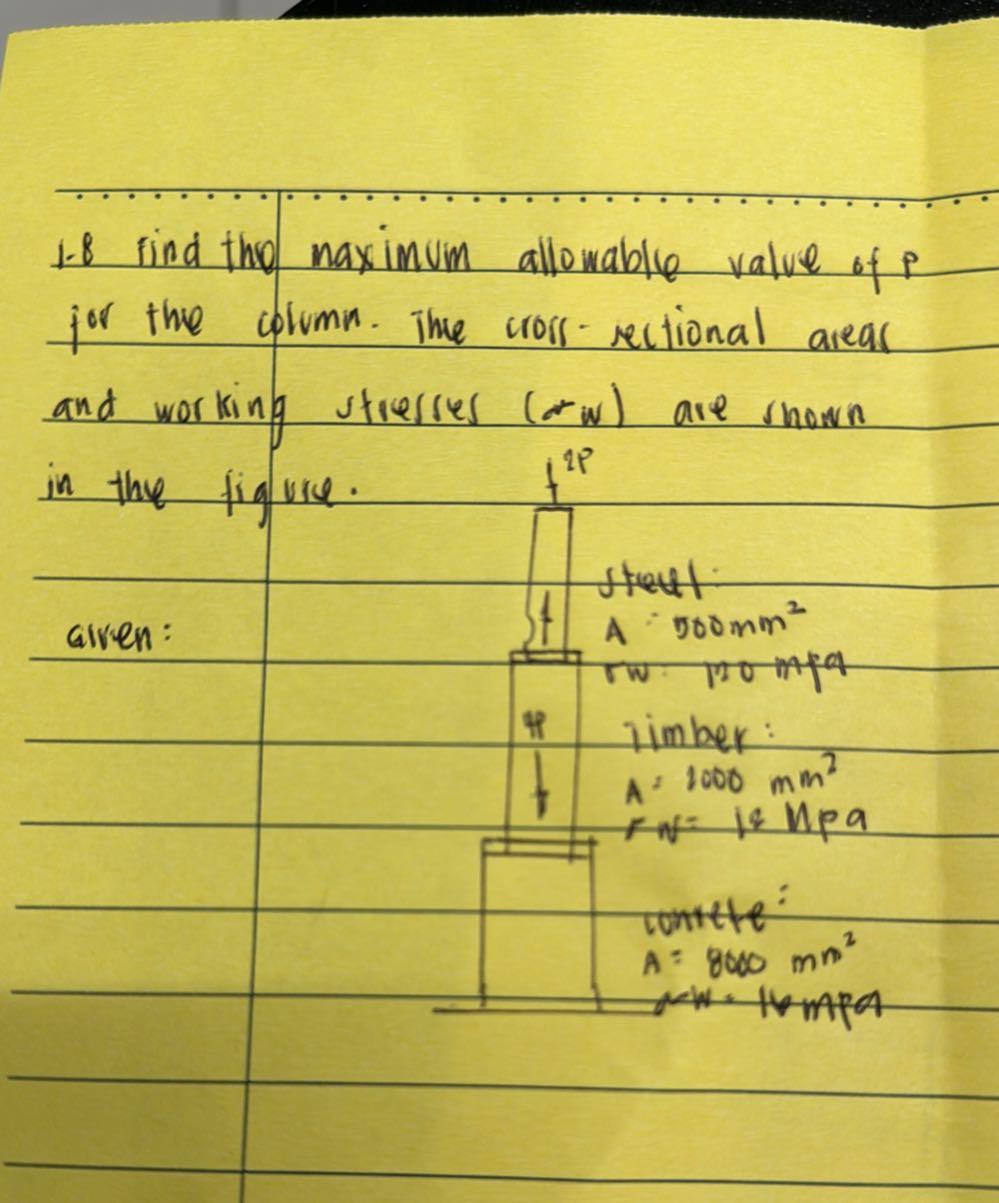 1-8 Find the maximum allowable value of P
for the column. The cross-sectional areas
and working stresses (σw) are shown
in the figure.
2P
Given:
Steel:
A = 500mm²
σw: 120 mpa
4P
Timber:
A = 2000 mm²
σw = 12 Mpa
concrete:
A = 8000 mm²
σw = 16 mpa